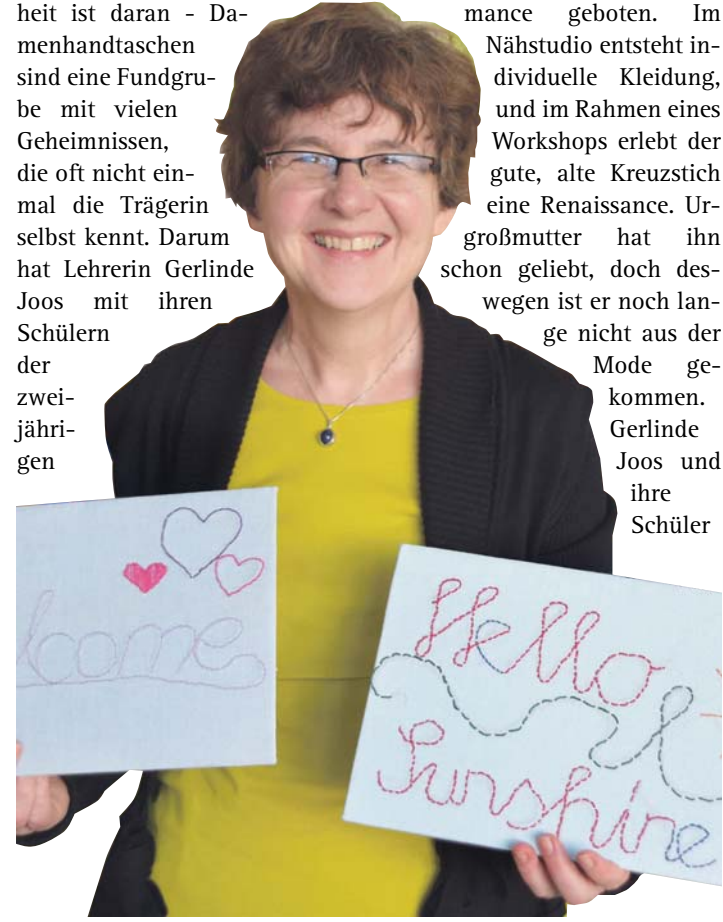 heit ist daran - Da-
menhandtaschen
sind eine Fundgru-
be mit vielen
Geheimnissen,
die oft nicht ein-
mal die Trägerin
selbst kennt. Darum
hat Lehrerin Gerlinde
Joos mit ihren
Schülern
der
zwei-
jähri-
gen
mance geboten. Im
Nähstudio entsteht in-
dividuelle Kleidung,
und im Rahmen eines
Workshops erlebt der
gute, alte Kreuzstich
eine Renaissance. Ur-
großmutter hat ihn
schon geliebt, doch des-
wegen ist er noch lan-
ge nicht aus der
Mode ge-
kommen.
Gerlinde
Joos und
ihre
Schüler
lcome
Hello
Sunshine